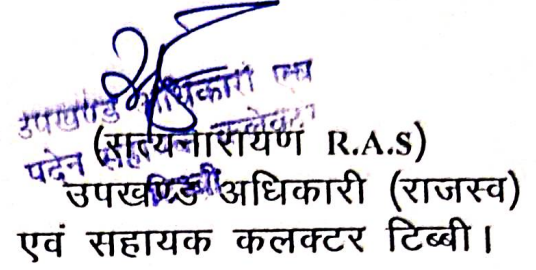 उपखण्ड अधिकारी एवं
पदेन सहायक कलेक्टर
टिब्बी
(सत्यनारायण R.A.S)
उपखण्ड अधिकारी (राजस्व)
एवं सहायक कलक्टर टिब्बी।